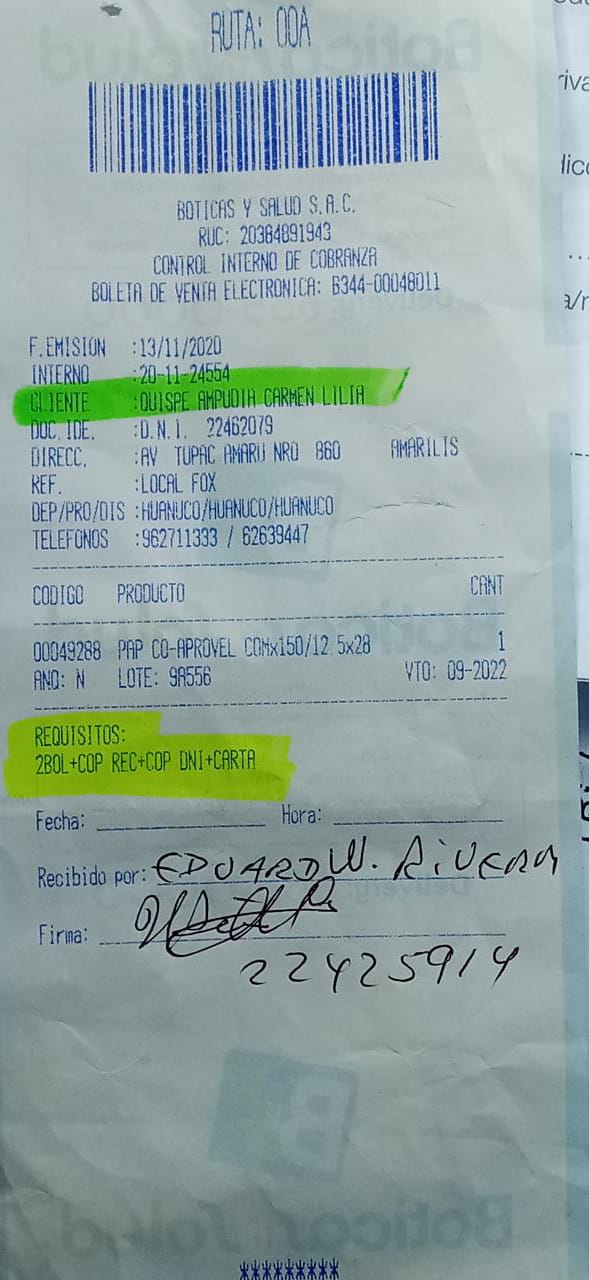 RUTA: 00A
BOTICAS Y SALUD S.A.C.
RUC: 20384891943
CONTROL INTERNO DE COBRANZA
BOLETA DE VENTA ELECTRONICA: B344-00048011
F.EMISION :13/11/2020
INTERNO :20-11-24554
CLIENTE :QUISPE AMPUDIA CARMEN LILIA
DOC.IDE. :D.N.I. 22462079
DIRECC. :AV TUPAC AMARU NRO 860 AMARILIS
REF. :LOCAL FOX
DEP/PRO/DIS :HUANUCO/HUANUCO/HUANUCO
TELEFONOS :962711333 / 62639447
CODIGO PRODUCTO CANT
00049288 PAP CO-APROVEL COMx150/12.5x28 1
ANQ: N LOTE: 9A556 VTO: 09-2022
REQUISITOS:
2BOL+COP REC+COP DNI+CARTA
Fecha: Hora:
Recibido por: EDUARDO W. RIVERA
Firma:
22425914
*********